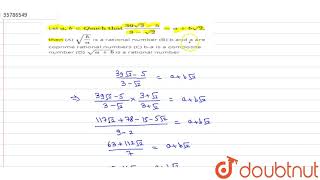 33786549
Let a, b ∈ Q such that (39√2 - 5)/(3 - √2) = a + b√2,
then (A) √(b/a) is a rational number (B) b and a are
coprime rational numbers (C) b-a is a composite
number (D) √(a + b) is a rational number
(39√2 - 5)/(3 - √2) = a + b√2
⇒ (39√2 - 5)/(3 - √2) × (3 + √2)/(3 + √2) = a + b√2
(117√2 + 78 - 15 - 5√2)/(9 - 2) = a + b√2
(63 + 112√2)/7 = a + b√2
doubtnut